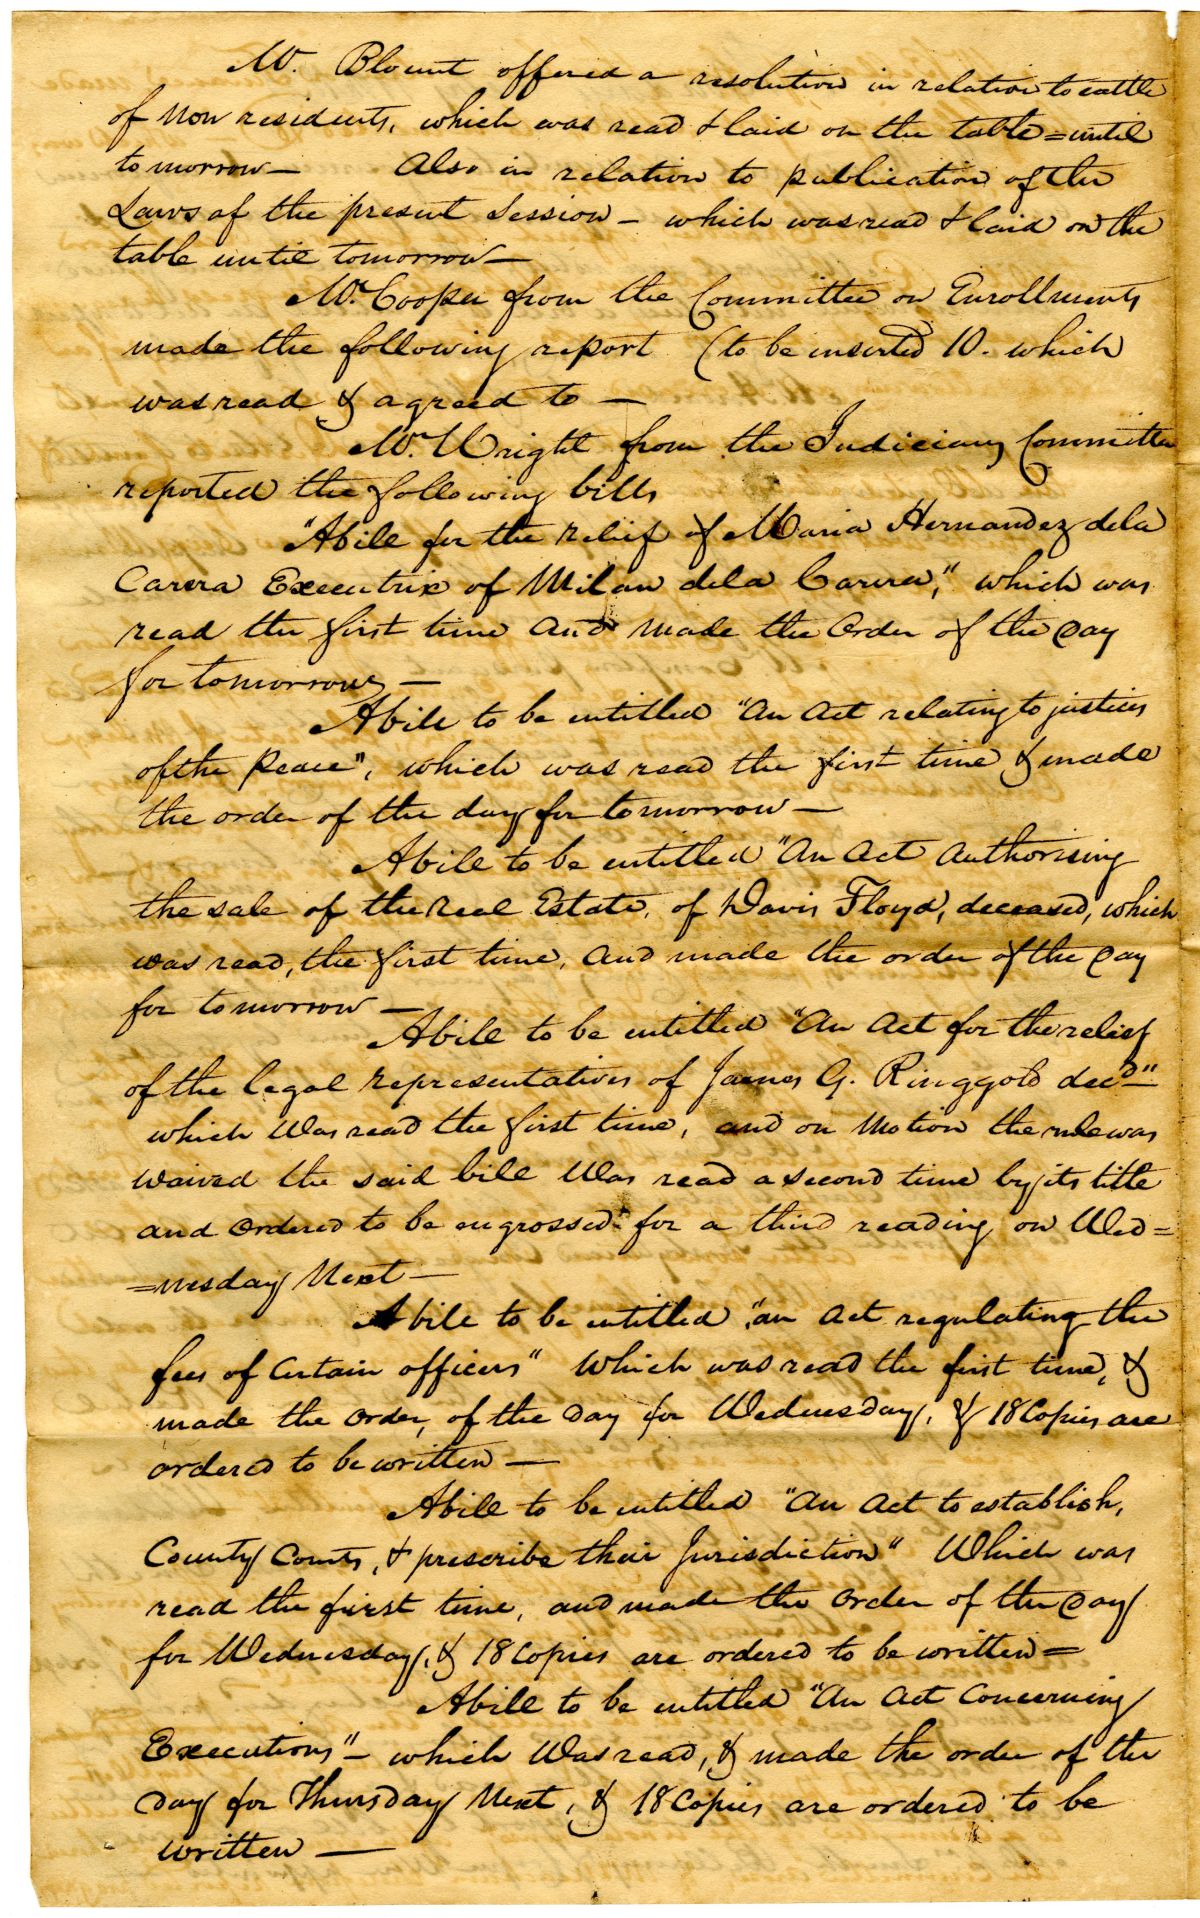 Mr. Blount offered a resolution in relation to cattle
of Non residents, which was read & laid on the table = until
tomorrow — Also in relation to publication of the
Laws of the present Session — which was read & laid on the
table until tomorrow —
Mr. Cooper from the Committee on Enrollments
made the following report (to be inserted 10. which
was read & agreed to —
Mr. Wright from the Judiciary Committee
reported the following bills
"A bill for the relief of Maria Hernandez dela
Carera Executrix of Milan dela Carera," which was
read the first time and made the order of the day
for tomorrow —
A bill to be entitled "An Act relating to justices
of the Peace", which was read the first time & made
the order of the day for tomorrow —
A bill to be entitled "An Act authorising
the sale of the real Estate, of Davis Floyd, deceased, which
was read, the first time, and made the order of the day
for tomorrow —
A bill to be entitled "An Act for the relief
of the legal representatives of James G. Ringgold decd"
which was read the first time, and on motion the rule was
waived the said bill was read a second time by its title
and ordered to be engrossed for a third reading on Wed=
=nesday Next —
A bill to be entitled, "an act regulating the
fees of certain officers" which was read the first time, &
made the order, of the day for Wednesday, & 18 Copies are
ordered to be written —
A bill to be entitled "An Act to establish,
County Courts, & prescribe their Jurisdiction" Which was
read the first time, and made the order of the day
for Wednesday, & 18 Copies are ordered to be written =
A bill to be entitled "An Act Concerning
Executions" — which was read, & made the order of the
day for Thursday Next, & 18 Copies are ordered to be
written —